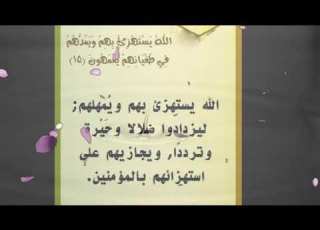 اللَّهُ يَسْتَهْزِئُ بِهِمْ وَيَمُدُّهُمْ
فِي طُغْيَانِهِمْ يَعْمَهُونَ (١٥)
الله يستهزئ بهم ويُمْهلهم؛
ليزدادوا ضلالا وحَيْرة
وترددًا، ويجازيهم على
استهزائهم بالمؤمنين.